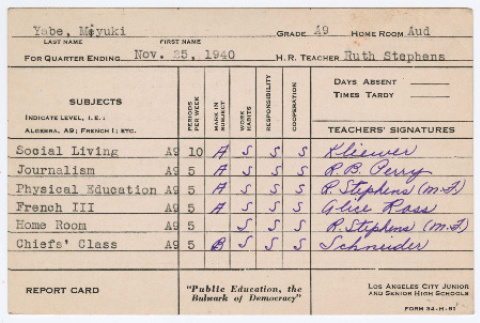 Yabe, Miyuki GRADE A9 HOME ROOM Aud
LAST NAME FIRST NAME
FOR QUARTER ENDING Nov. 25, 1940 H.R. TEACHER Ruth Stephens
SUBJECTS
INDICATE LEVEL, I.E.:
ALGEBRA, A9; FRENCH I; ETC.
PERIODS PER WEEK
MARK IN SUBJECT
WORK HABITS
RESPONSIBILITY
COOPERATION
DAYS ABSENT
TIMES TARDY
TEACHERS' SIGNATURES
Social Living A9 10 A S S S Kliewer
Journalism A9 5 A S S S R. B. Perry
Physical Education A9 5 A S S S R. Stephens (M.F)
French III A9 5 A S S S Alice Ross
Home Room A9 5 S S S R. Stephens (M.F)
Chiefs' Class A9 5 B S S S Schneider
REPORT CARD
"Public Education, the
Bulwark of Democracy"
LOS ANGELES CITY JUNIOR
AND SENIOR HIGH SCHOOLS
FORM 34-H-81